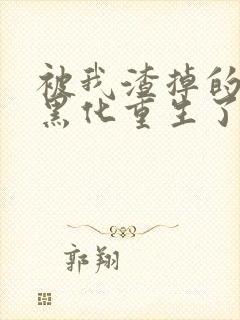 被我渣掉的
黑化重生了
郭翔